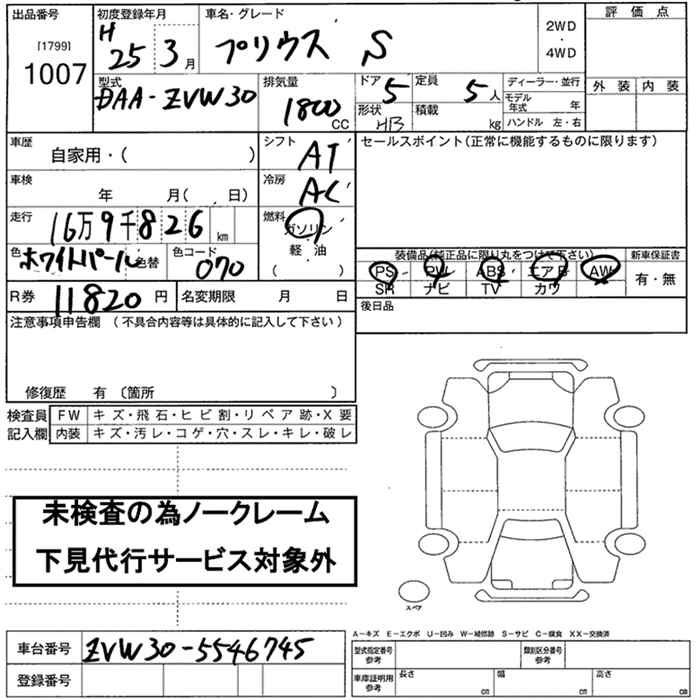 出品番号 初度登録年月 車名・グレード 評価点
[1799] H 2WD
1007 25 3月 プリウス S ・ 4WD
型式 排気量 ドア 5 定員 5人 ディーラー・並行 外装 内装
DAA-ZVW30 1800CC 形状 HB 積載 kg モデル年式 年
ハンドル 左・右
車歴 シフト セールスポイント(正常に機能するものに限ります)
自家用・( ) AT
車検 冷房
年 月( 日) AC
走行 燃料
16万9千826km ガソリン
軽・油
( )
色 ホワイトパール 色替 色コード 070
装備品(純正品に限り丸をつけて下さい) 新車保証書
PS PW ABS エアB AW 有・無
SR ナビ TV カワ
R券 11820円 名変期限 月 日 後日品
注意事項申告欄 (不具合内容等は具体的に記入して下さい)
修復歴 有 〔箇所 〕
検査員 FW キズ・飛石・ヒビ割・リペア跡・X要
記入欄 内装 キズ・汚レ・コゲ・穴・スレ・キレ・破レ
未検査の為ノークレーム
下見代行サービス対象外
スペア
A-キズ E-エクボ U-凹み W-補修跡 S-サビ C-腐食 XX-交換済
車台番号 ZVW30-5546745 型式指定番号 参考 類別区分番号 参考
登録番号 車庫証明用 参考 長さ cm 幅 cm 高さ cm